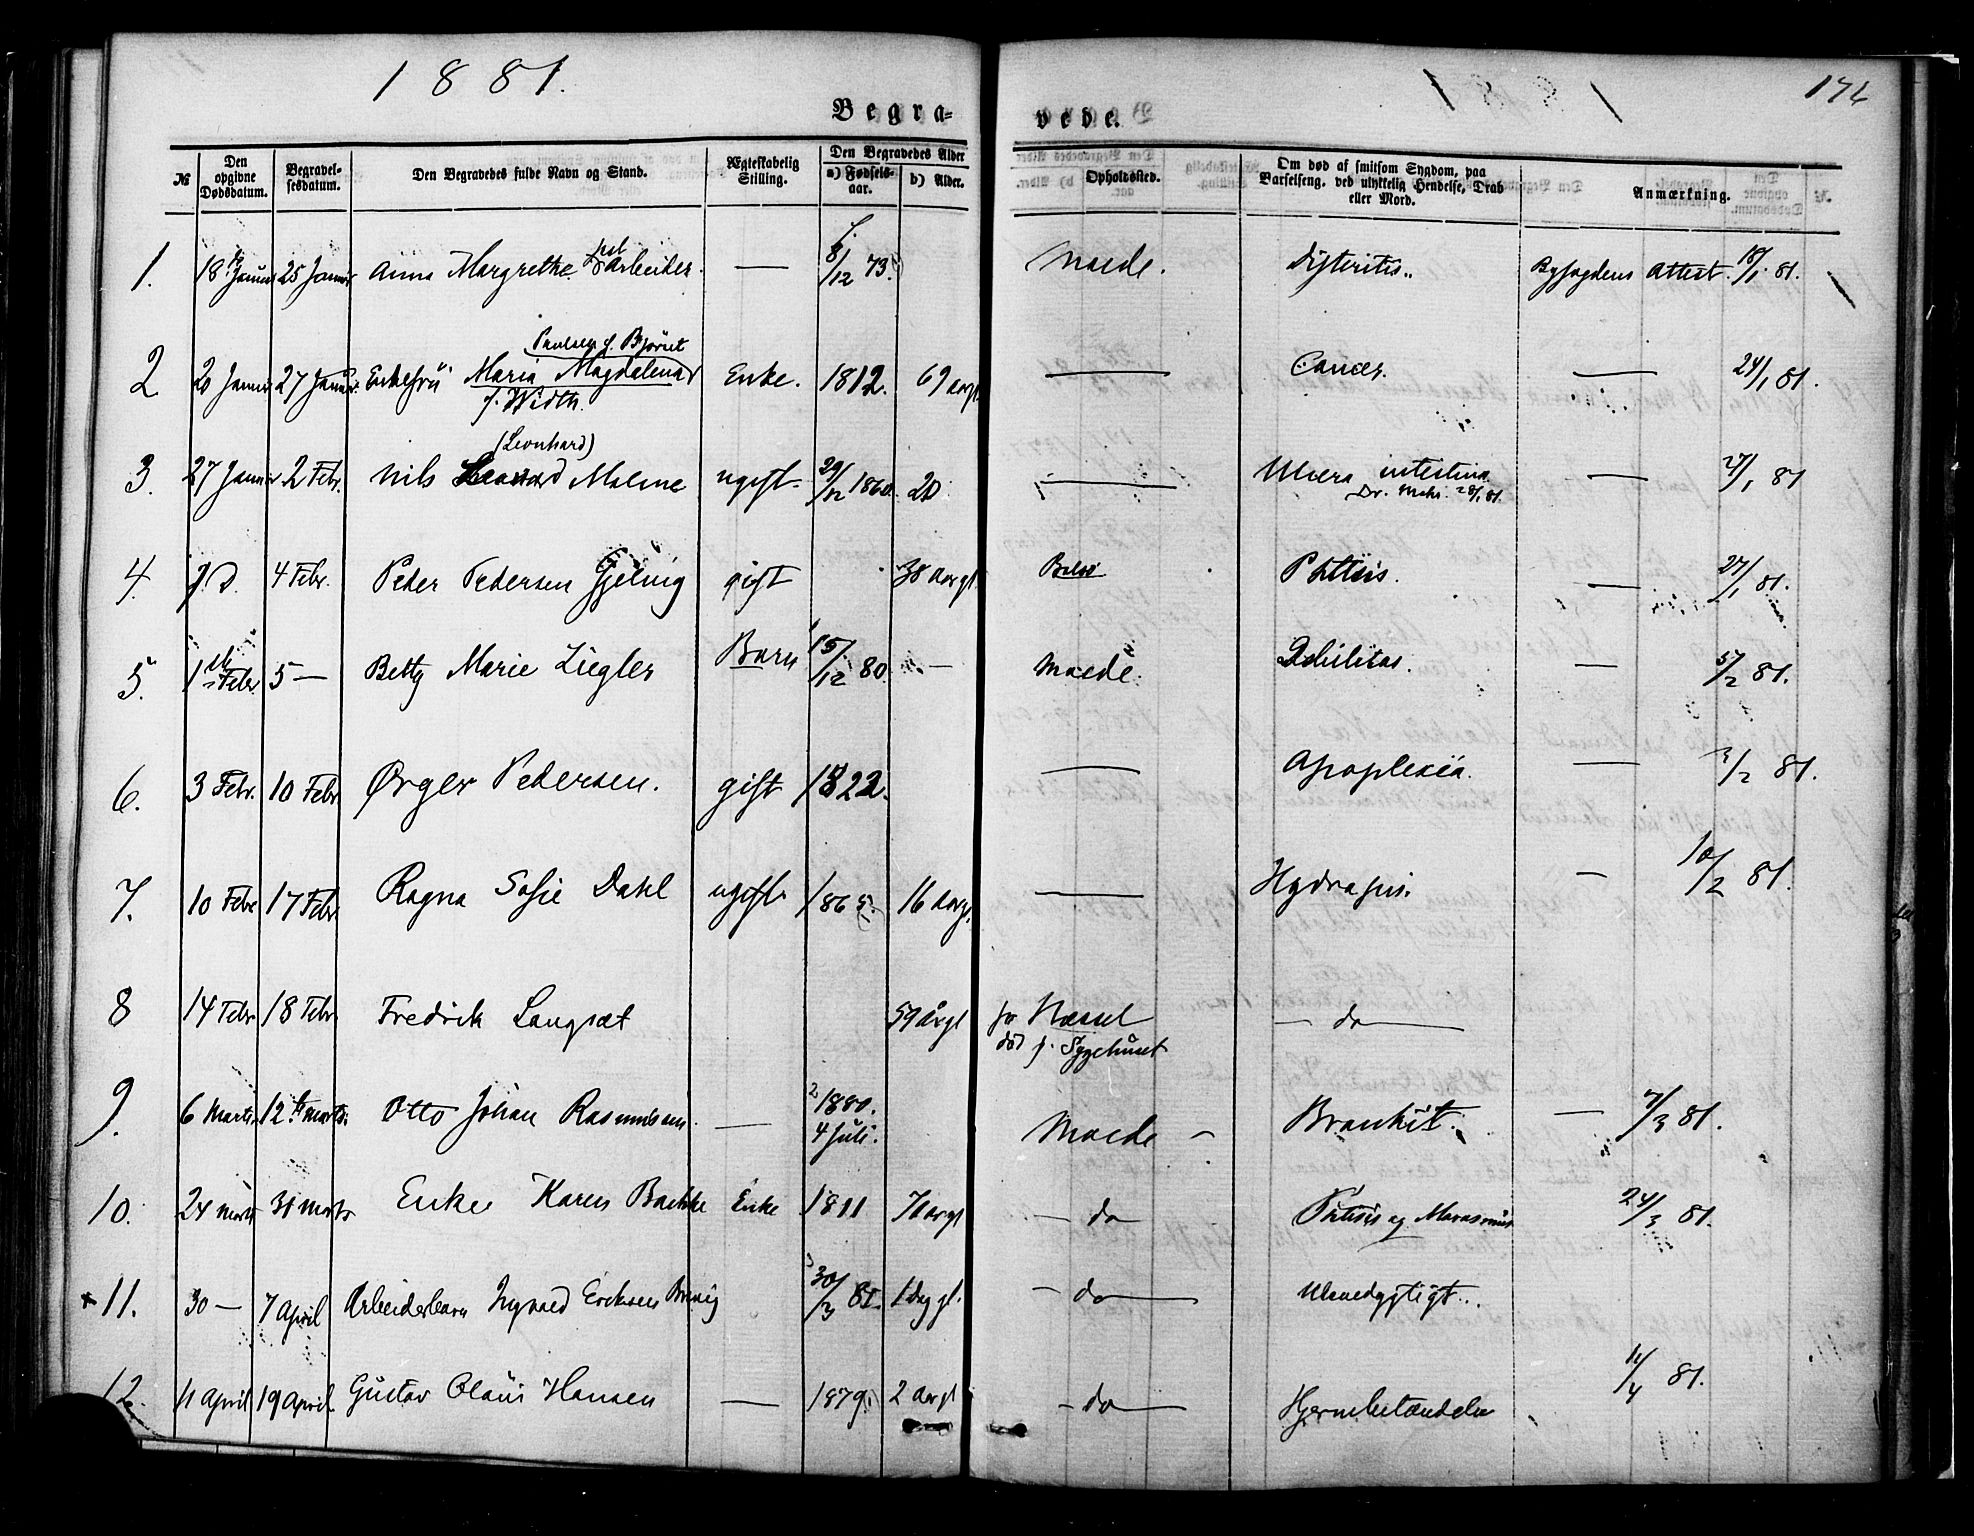 1881.
Begra-
vede.
176
№
Den opgivne Dødsdatum.
Begravel-sesdatum.
Den Begravedes fulde Navn og Stand.
Ægteskabelig Stilling.
Den Begravedes Alder
a) Fødsels-aar.
b) Alder.
Opholdssted.
Om død af smitsom Sygdom, paa Barselseng, ved ulykkelig Hendelse, Drab eller Mord.
Anmærkning.
1. 18 Januar 25 Januar Anna Margrethe Arbeider. — 8/12 73. Molde. Difteritis. Byfogdens Attest 18/1 81.
Paulsen f. Bjørset
2 20 Januar 27 Januar Enkefrü Maria Magdalena Enke. 1812. 69 aargl — Cancer. — 24/1 81.
f. Width.
(Leonhard)
3. 27 Januar 2 Febr. Nils Malme ugift 29/12 1860. 20 — Ulcera intestina — 27/1 81
Dr. 28/1 81.
4. J. D. 4 Febr. Peder Pedersen Gjelvig gift 38 aargl Bolsø Phthisis. — 27/1 81.
5. 1ste Febr 5 — Betty Marie Ziegler Barn 15/12 80. — Molde. Debilitas. — 5/2 81.
6. 3 Febr. 10 Febr Ørger Pedersen. gift 1822. — Apoplexia. — 3/2 81.
7. 10 Febr 17 Febr Ragna Sofie Dahl ugift 1865. 16 aargl. — Hydropsis. — 10/2 81.
8 14 Febr 18 Febr Fredrik Langsæt 59 årgl fr Næssel — do —
død p. Sygehuset
9. 6 Marts 12te Marts. Otto Johan Rasmussen. — 1880. 4 Juli. Molde — Bronkit. — 7/3 81.
10. 24 Marts 31 Marts Enke Karen Bakke Enke 1811 70 argl — do Phtisis og Marasmus 24/3 81.
11. 30 — 7 April Arbeiderbarn Ingvald Eriksen 30/3 81. 1 Dag gl. — do — Ulevedygtigt.
12. 11 April 19 April. Gustav Olaus Hansen — 1879. 2 aargl — do — Hjernebetændelse 11/4 81.